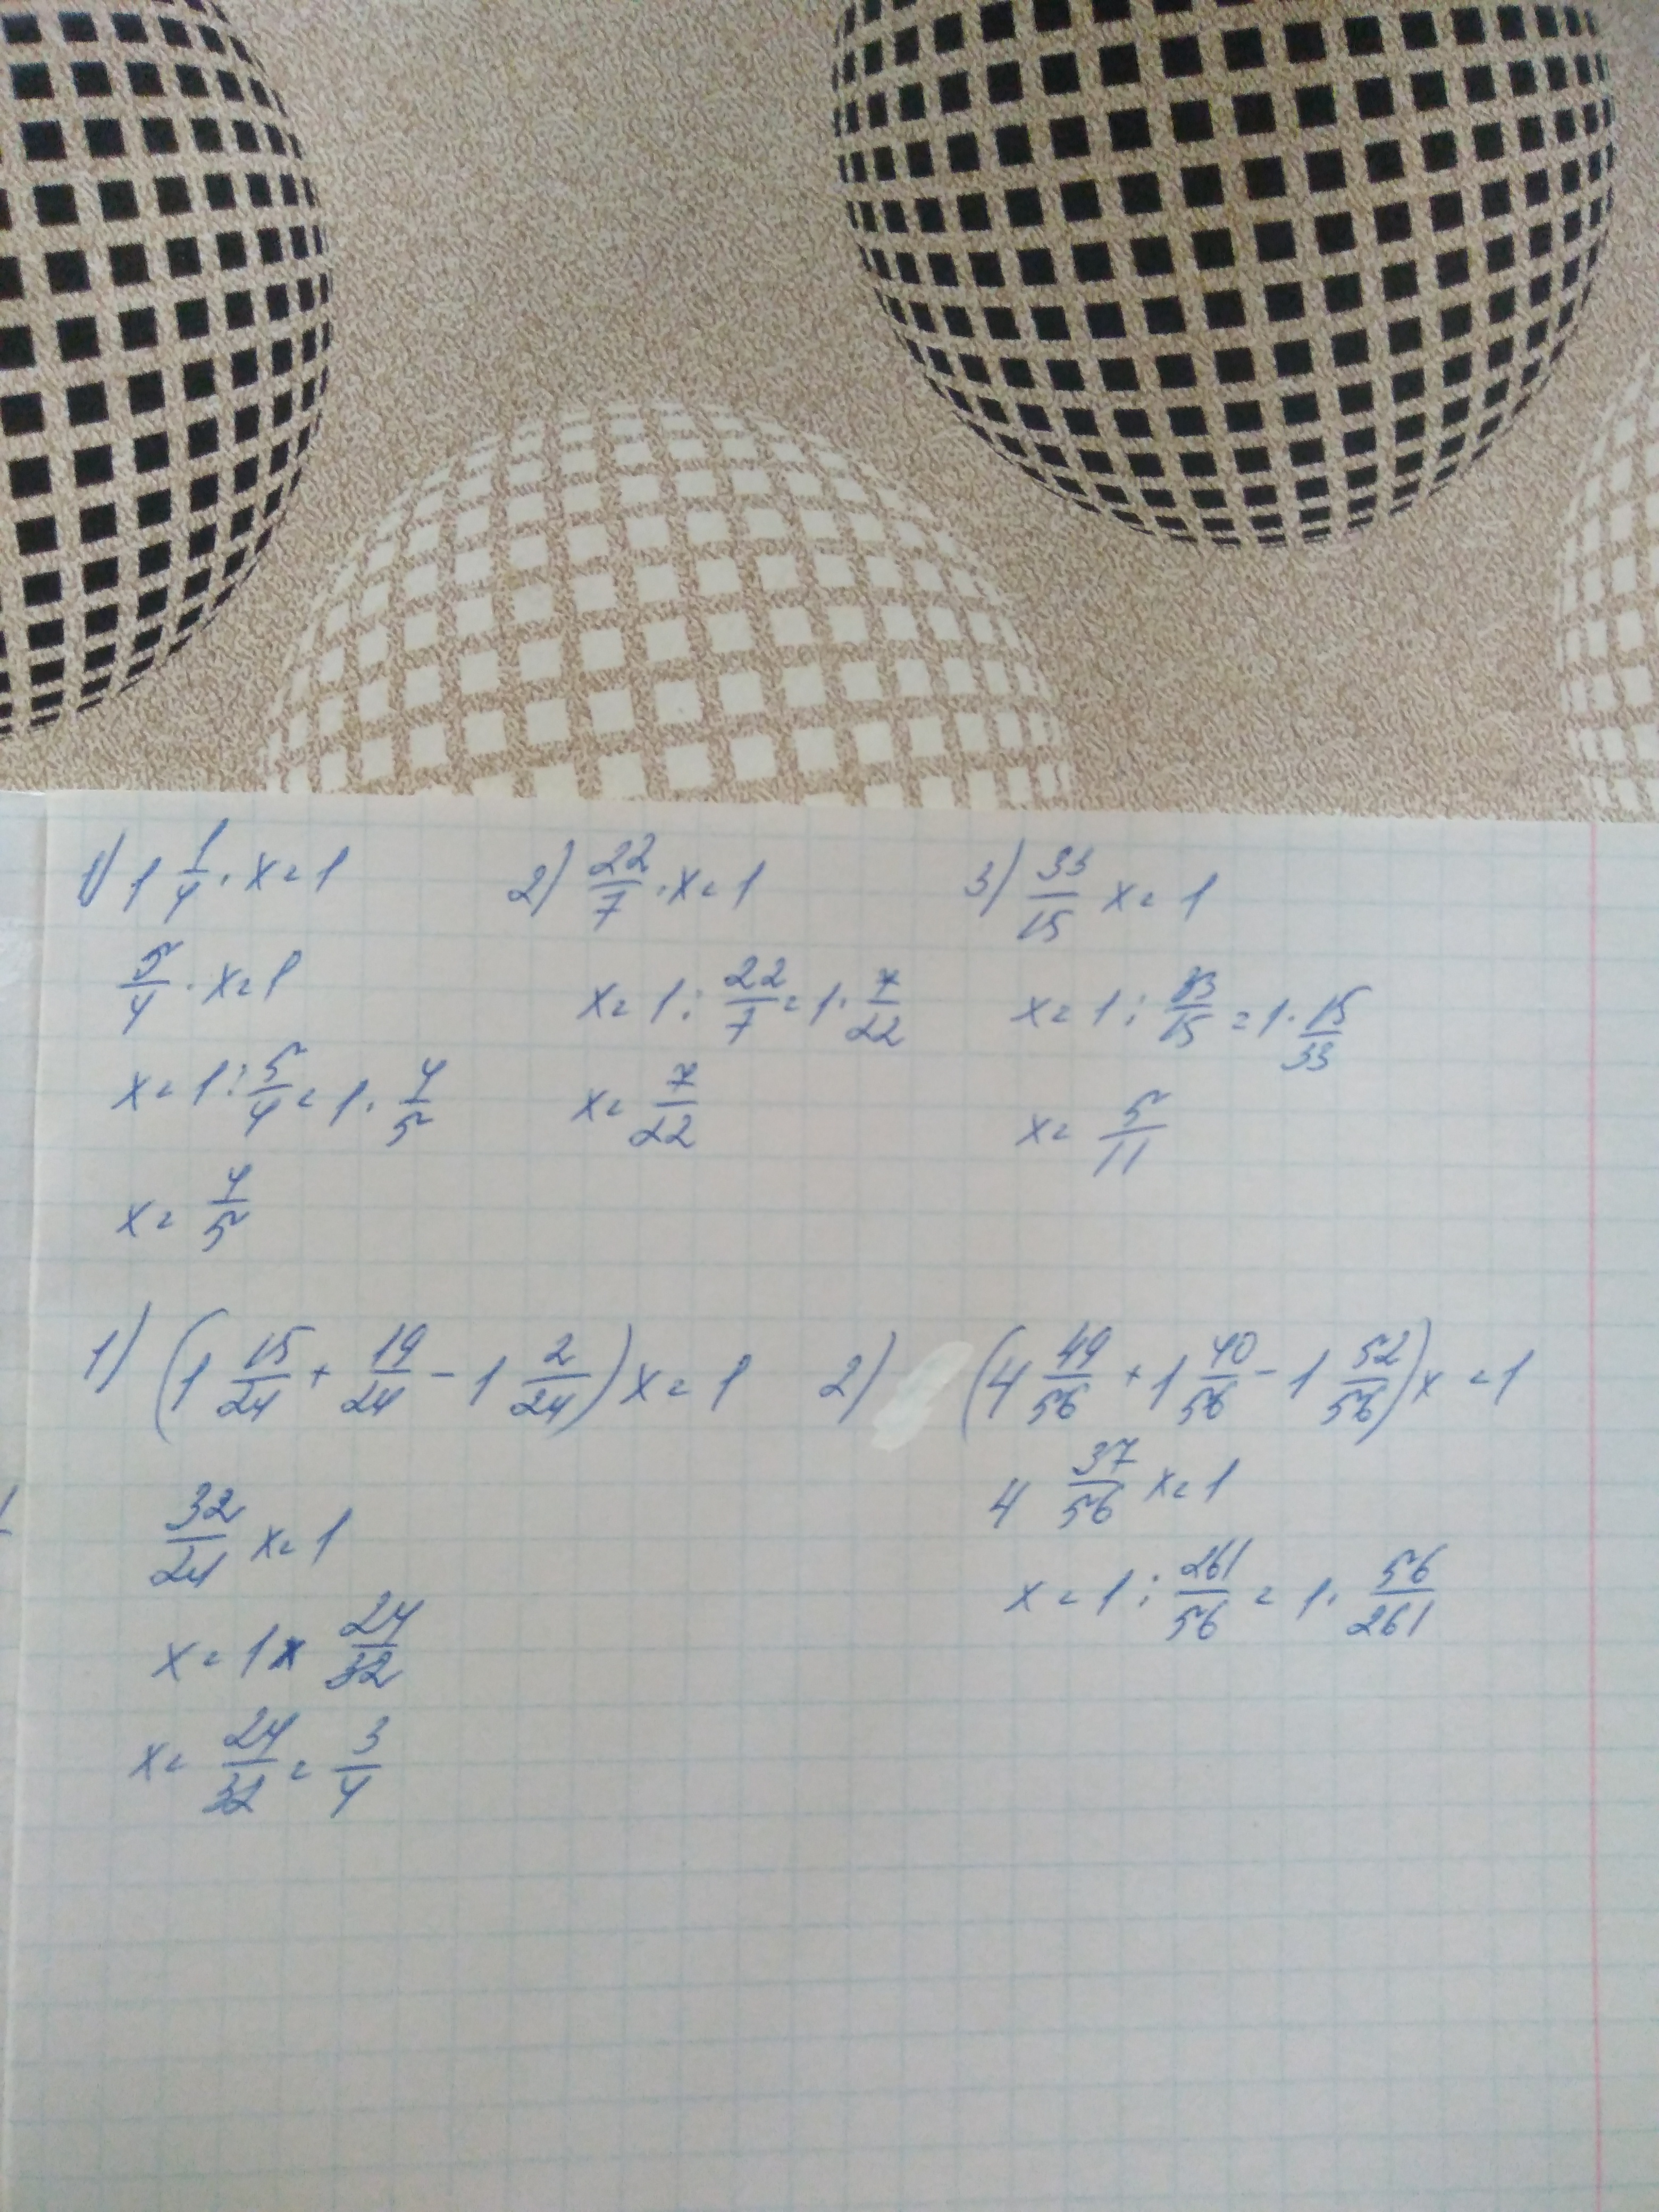 1) 1 1/4 · x = 1
5/4 · x = 1
x = 1 : 5/4 = 1 · 4/5
x = 4/5
2) 22/7 · x = 1
x = 1 : 22/7 = 1 · 7/22
x = 7/22
3) 33/15 x = 1
x = 1 : 33/15 = 1 · 15/33
x = 5/11
1) (1 15/24 + 19/24 - 1 2/24) x = 1
32/24 x = 1
x = 1 x 24/32
x = 24/32 = 3/4
2) (4 49/56 + 1 40/56 - 1 52/56) x = 1
4 37/56 x = 1
x = 1 : 261/56 = 1 · 56/261